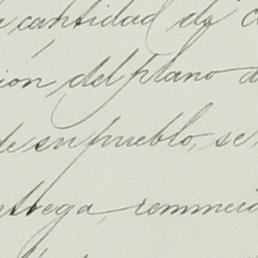 cantidad de
ión, del plano
de su pueblo, se
ntrega, remmcio